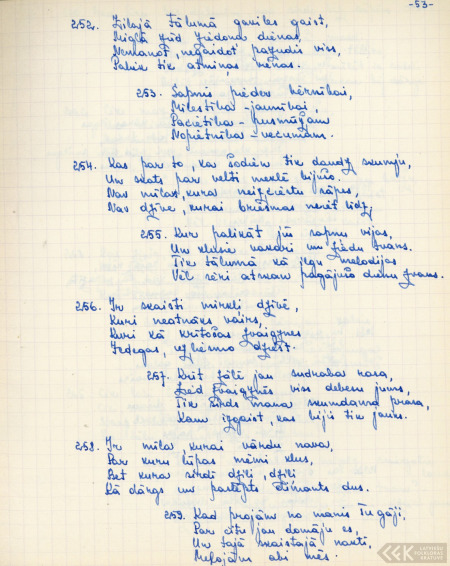 -53-
252. Zilajā tālumā gaviles gaist,
Miglā zūd ziedoņa dienas,
Nemanot, negaidot pazudīs viss,
Paliek tik atmiņas vienas.
253. Sapnis pieder bērnībai,
Mīlestība - jaunībai,
Pacietība - pusmūžam
Nopietnība - vecumam.
254. Kas par to, ka šodien tik daudz skumju,
Un skats par velti meklē bijušo.
Nav mīlas, kura neizciestu sāpes,
Nav dzīve, kurai briesmas neiet līdz,
255. Kur palikāt jūs sapņu vijas,
Un klusie vakari un ziedu zvans.
Tik tālumā kā liegu melodijas
Vēl sēri atskan pagājušo dienu zvans.
256. Ir skaisti mirkļi dzīvē,
Kuri neatnāks vairs,
Kuri kā krītošas zvaigznes
Iedegas, uzliesmo dziest.
257. Krīt zālē jau sudraba rasa,
Zied zvaigznēs viss debesu jums,
Tik sirds mana skumdama prasa,
Kam izgaist, kas bijis tik jauks.
258. Ir mīla, kurai vārdu nava,
Par kuru lūpas mēmi klus,
Bet kura sirdī dziļi, dziļi
Kā dārgs un paslēpts dimants dus.
259. Kad projām no manis Tu gāji,
Par citu jau domāju es,
Un tajā skaistajā naktī,
Melojām abi mēs.
LATVIEŠU
FOLKLORAS
KRĀTUVE